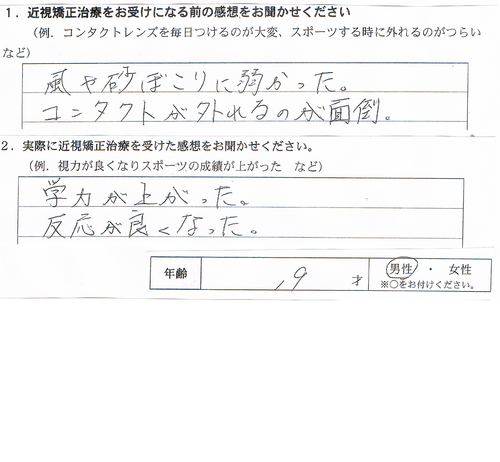 １．近視矯正治療をお受けになる前の感想をお聞かせください
（例．コンタクトレンズを毎日つけるのが大変、スポーツする時に外れるのがつらい
など）
風や砂ぼこりに弱かった。
コンタクトが外れるのが面倒。
２．実際に近視矯正治療を受けた感想をお聞かせください。
（例．視力が良くなりスポーツの成績が上がった　など）
学力が上がった。
反応が良くなった。
年齢　19　才　男性　・　女性
※○をお付けください。